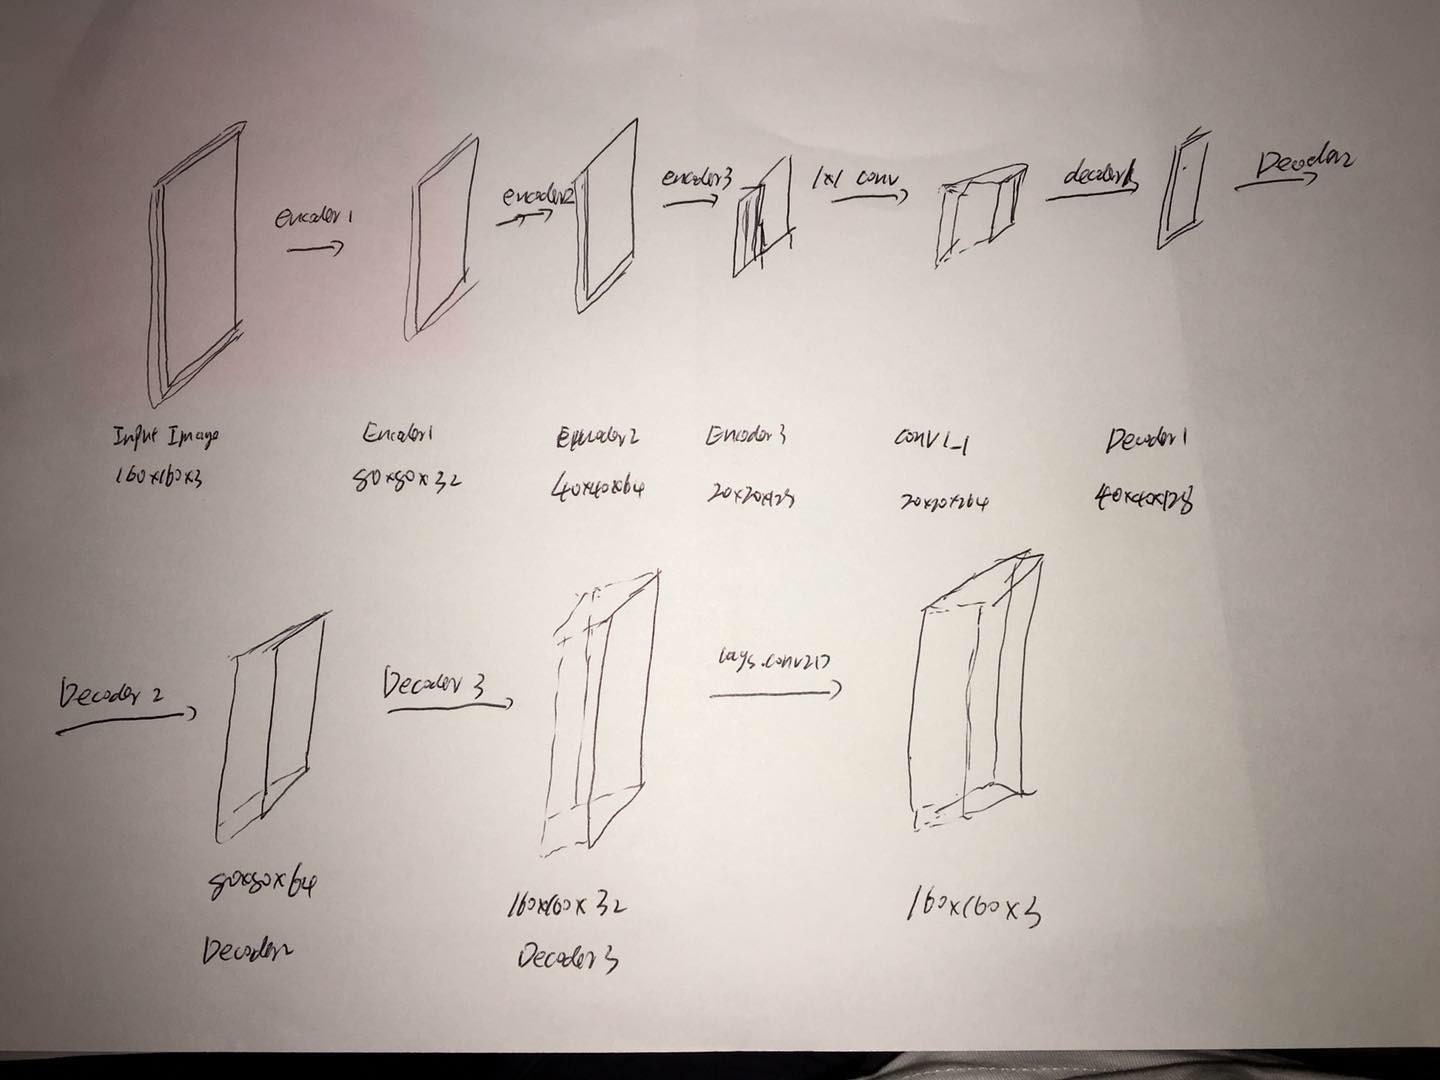 encoder1
encoder2
encoder3
1x1 conv
decoder1
Decoder2
Input Image
160x160x3
Encoder1
80x80x32
Encoder2
40x40x64
Encoder3
20x20x128
conv1_1
20x20x264
Decoder1
40x40x128
Decoder 2
Decoder 3
80x80x64
Decoder2
160x160x32
Decoder3
160x160x3